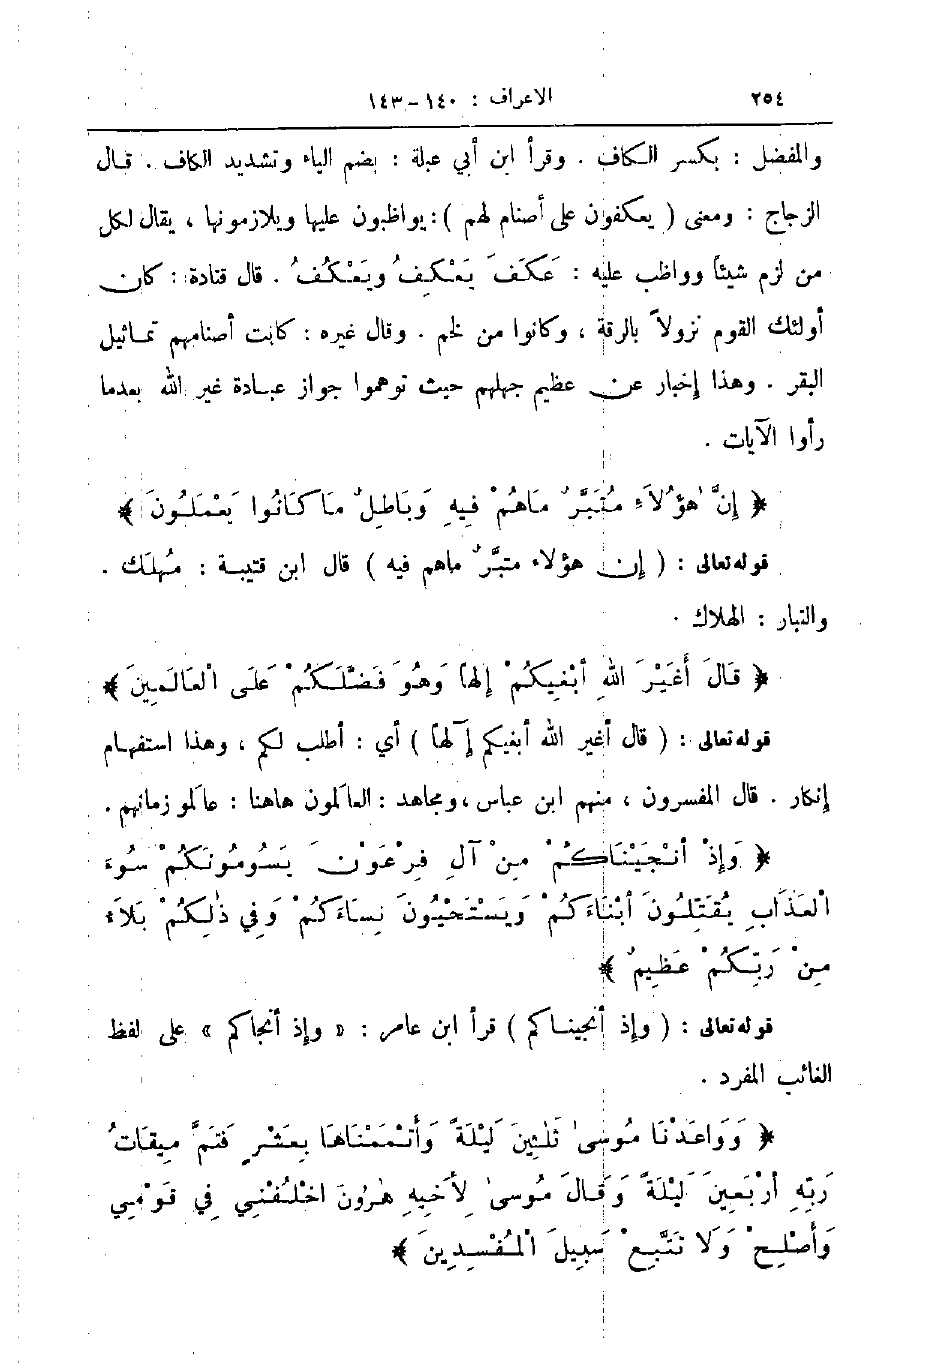 ٢٥٤ الاعراف : ١٤٠-١٤٣
والمفضل : بكسر الكاف . وقرأ ابن أبي عبلة : بضم الياء وتشديد الكاف . قال
الزجاج : ومعنى ( يعكفون على أصنام لهم ) : يواظبون عليها ويلازمونها ، يقال لكل
من لزم شيئاً وواظب عليه : عَكَفَ يَعْكِفُ ويَعْكُفُ . قال قتادة : كان
أولئك القوم نزولاً بالرقة ، وكانوا من لخم . وقال غيره : كانت أصنامهم تماثيل
البقر . وهذا إخبار عن عظيم جهلهم حيث توهموا جواز عبادة غير الله بعدما
رأوا الآيات .
﴿ إِنَّ هٰؤُلَاءِ مُتَبَّرٌ مَاهُمْ فِيهِ وَبَاطِلٌ مَا كَانُوا يَعْمَلُونَ ﴾
قوله تعالى : ( إن هؤلاء متبَّرٌ ماهم فيه ) قال ابن قتيبة : مُهلَك .
والتبار : الهلاك .
﴿ قَالَ أَغَيْرَ اللهِ أَبْغِيكُمْ إِلٰهاً وَهُوَ فَضَّلَكُمْ عَلَى الْعَالَمِينَ ﴾
قوله تعالى : ( قال أغير الله أبغيكم إلٰهاً ) أي : أطلب لكم ، وهذا استفهام
إنكار . قال المفسرون ، منهم ابن عباس ، ومجاهد : العالمون هاهنا : عالمو زمانهم .
﴿ وَإِذْ أَنْجَيْنَاكُمْ مِنْ آلِ فِرْعَوْنَ يَسُومُونَكُمْ سُوءَ
الْعَذَابِ يُقَتِّلُونَ أَبْنَاءَكُمْ وَيَسْتَحْيُونَ نِسَاءَكُمْ وَفِي ذٰلِكُمْ بَلَاءٌ
مِنْ رَبِّكُمْ عَظِيمٌ ﴾
قوله تعالى : ( وإذ أنجيناكم ) قرأ ابن عامر : « وإذ أنجاكم » على لفظ
الغائب المفرد .
﴿ وَوَاعَدْنَا مُوسىٰ ثَلٰثِينَ لَيْلَةً وَأَتْمَمْنَاهَا بِعَشْرٍ فَتَمَّ مِيقَاتُ
رَبِّهِ أَرْبَعِينَ لَيْلَةً وَقَالَ مُوسىٰ لِأَخِيهِ هٰرُونَ اخْلُفْنِي فِي قَوْمِي
وَأَصْلِحْ وَلَا تَتَّبِعْ سَبِيلَ الْمُفْسِدِينَ ﴾